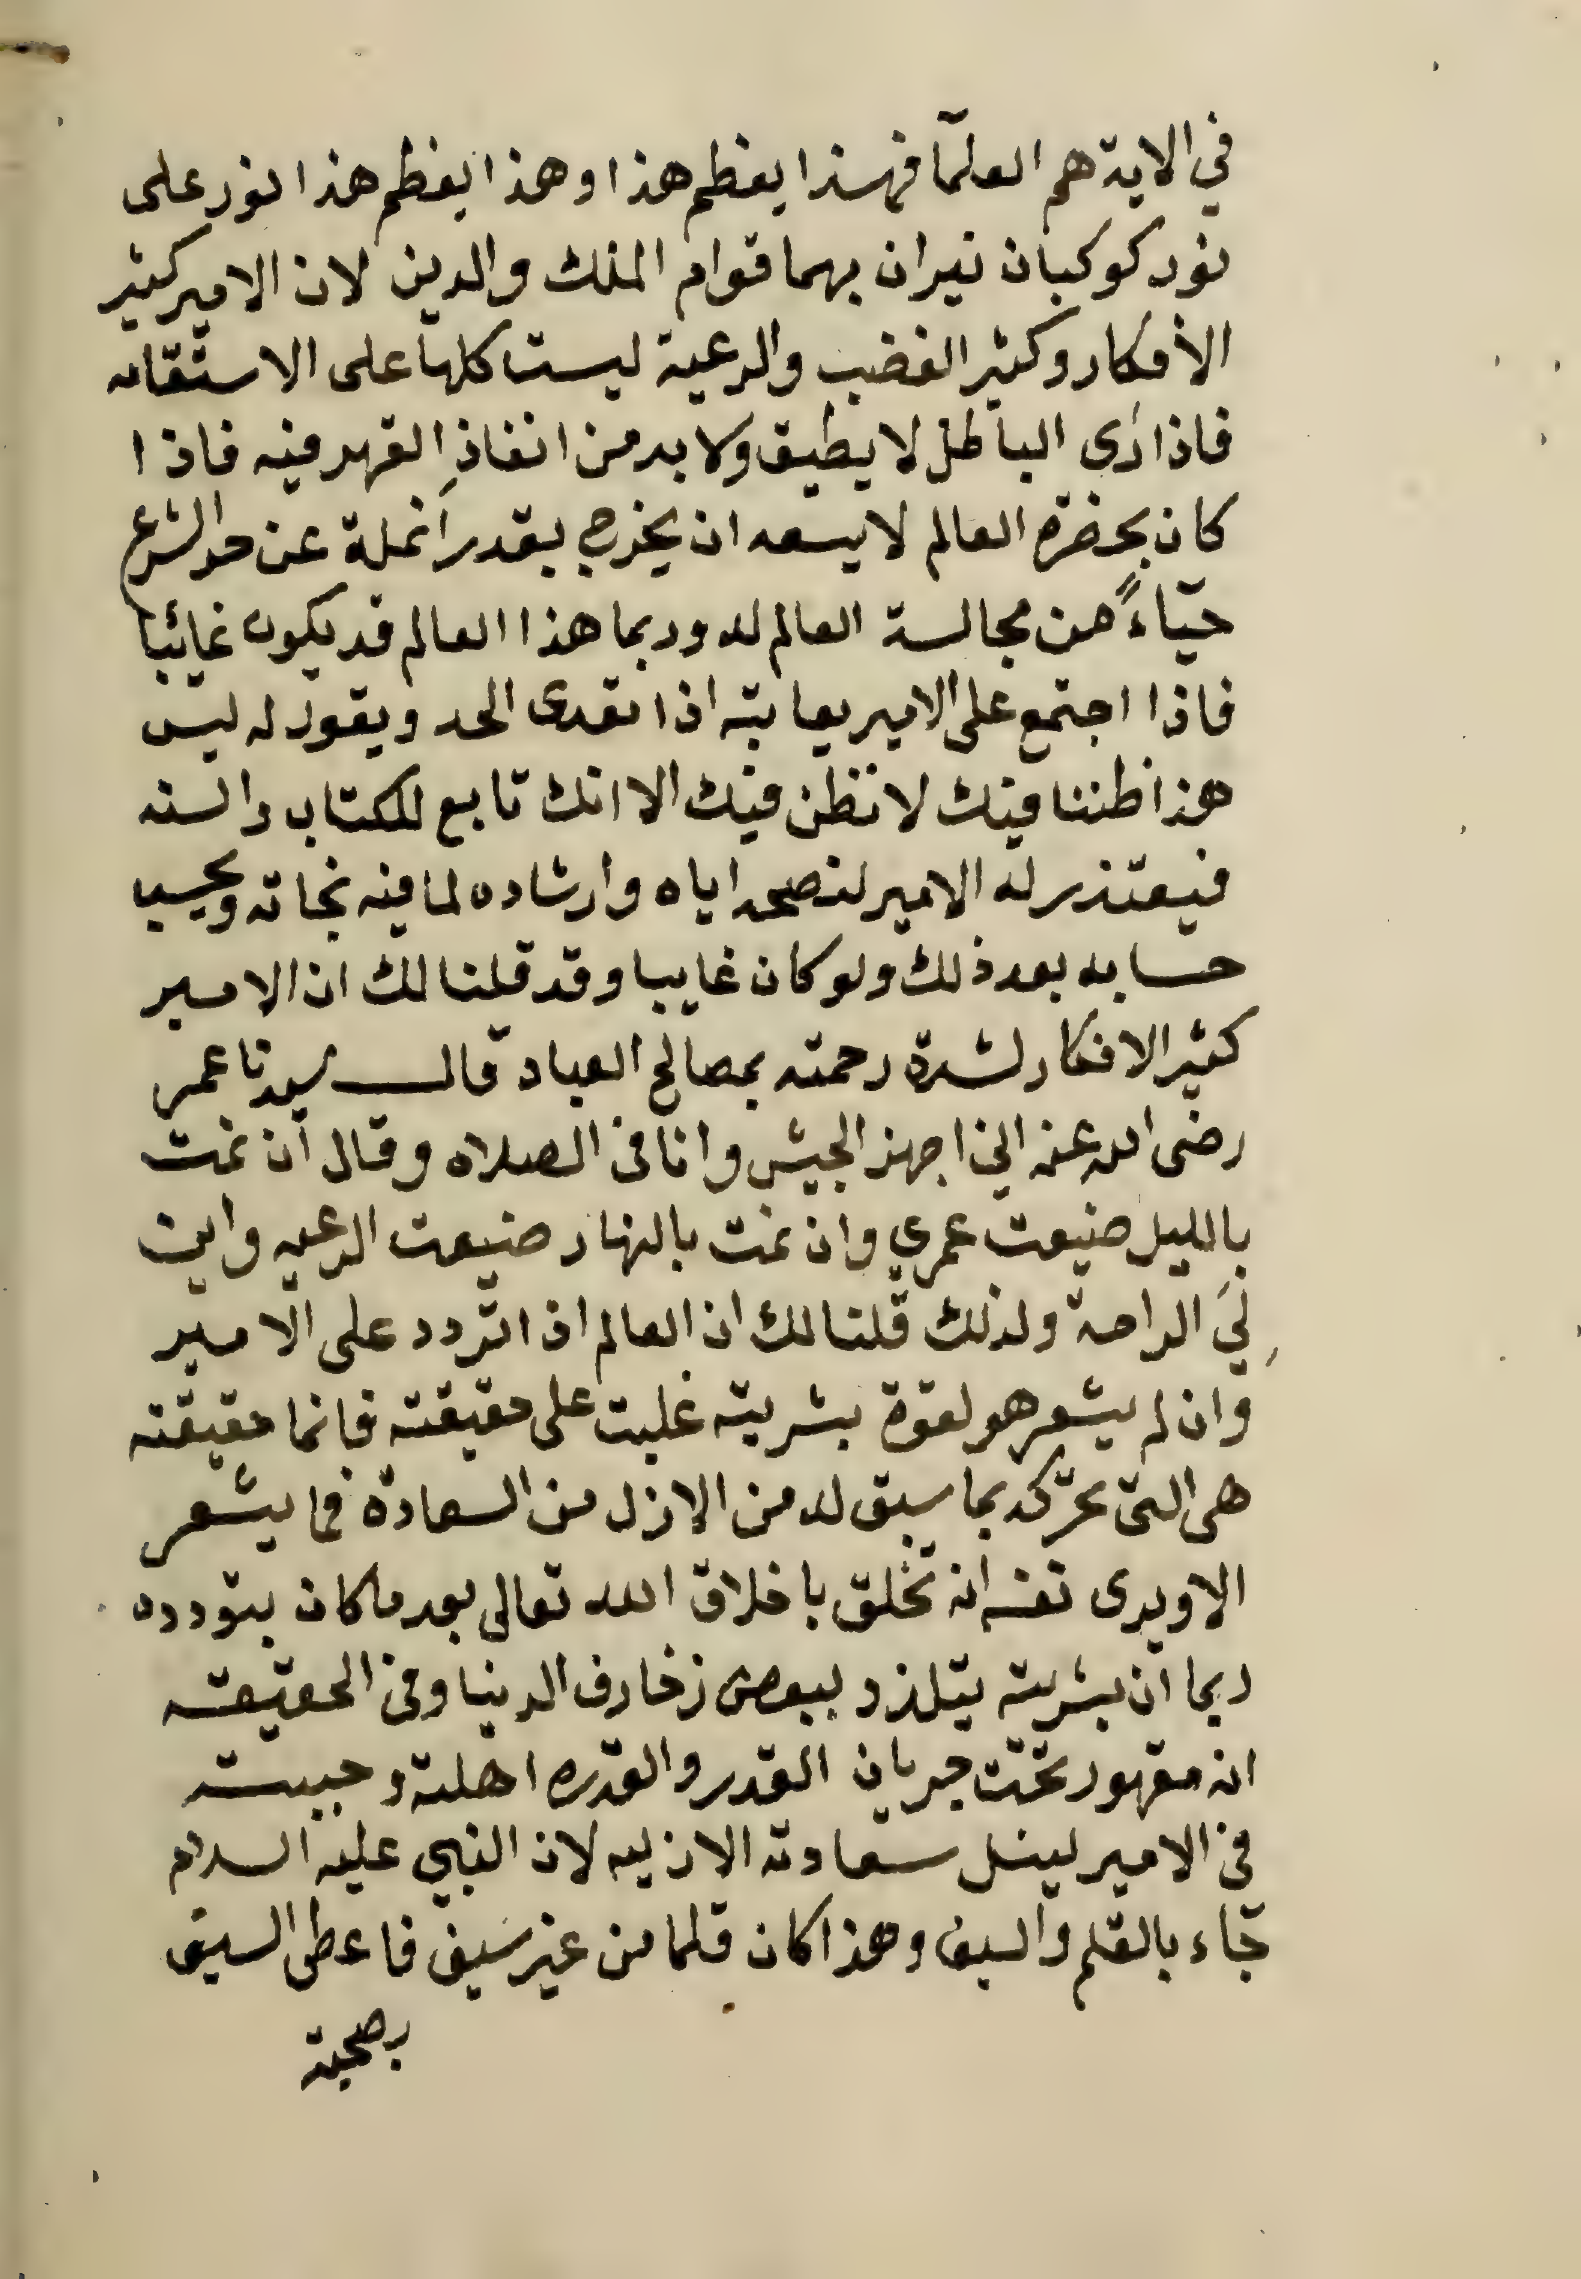 في الاية هم العلمآ فهذا يعظم هذا وهذا يعظم هذا نور على
نور كوكبان نيران بهما قوام الملك والدين لان الامير كثير
الأفكار وكثير الغضب والرعية ليست كلها على الاستقامه
فاذا رأى الباطل لا يطيق ولا بد من انفاذِ القهر فيه فاذا
كان بحضرة العالم لا يسعه ان يخرج بقدر أنملة عن حد الشرع
حيّاءً من مجالسة العالم له وربما هذا العالم قد يكون غائبا
فاذا اجتمع على الامير يعاتبه اذا تعدى الحد ويقول له ليس
هذا ظننا فيك لا نظن فيك الا انك تابع للكتاب والسنه
فيعتذر له الامير لنصحه اياه وارشاده لما فيه نجاته ويحسب
حسابه بعد ذلك ولو كان غايبا وقد قلنا لك ان الامير
كثير الافكار لشدة رحمته بمصالح العباد قال سيدنا عمر
رضى الله عنه اني اجهز الجيش وانا في الصلاه وقال أن نمت
بالليل ضيعت عمري وان نمت بالنهار ضيعت الرعيه واين
لي الراحة ولذلك قلنا لك ان العالم اذا تردد على الامير
وان لم يشعر هو لقوة بشريته غلبت على حقيقته فانما حقيقته
هى التى تحرّكه بما سبق له من الازل من السعادة فما يشعر
الا ويرى نفسه انه تخلق باخلاق الله تعالى بعد ما كان بتودده
ربما ان بشريته تتلذذ ببعض زخارف الدنيا وفي الحقيقة
انه مقهور تحت جريان القدر والقدره اهلته وحببته
في الامير لينل سعادته الازليه لان النبي عليه السلام
جّاء بالقلم والسيف وهذا كان قلما من غير سيف فاعطى السيف
بصحبة